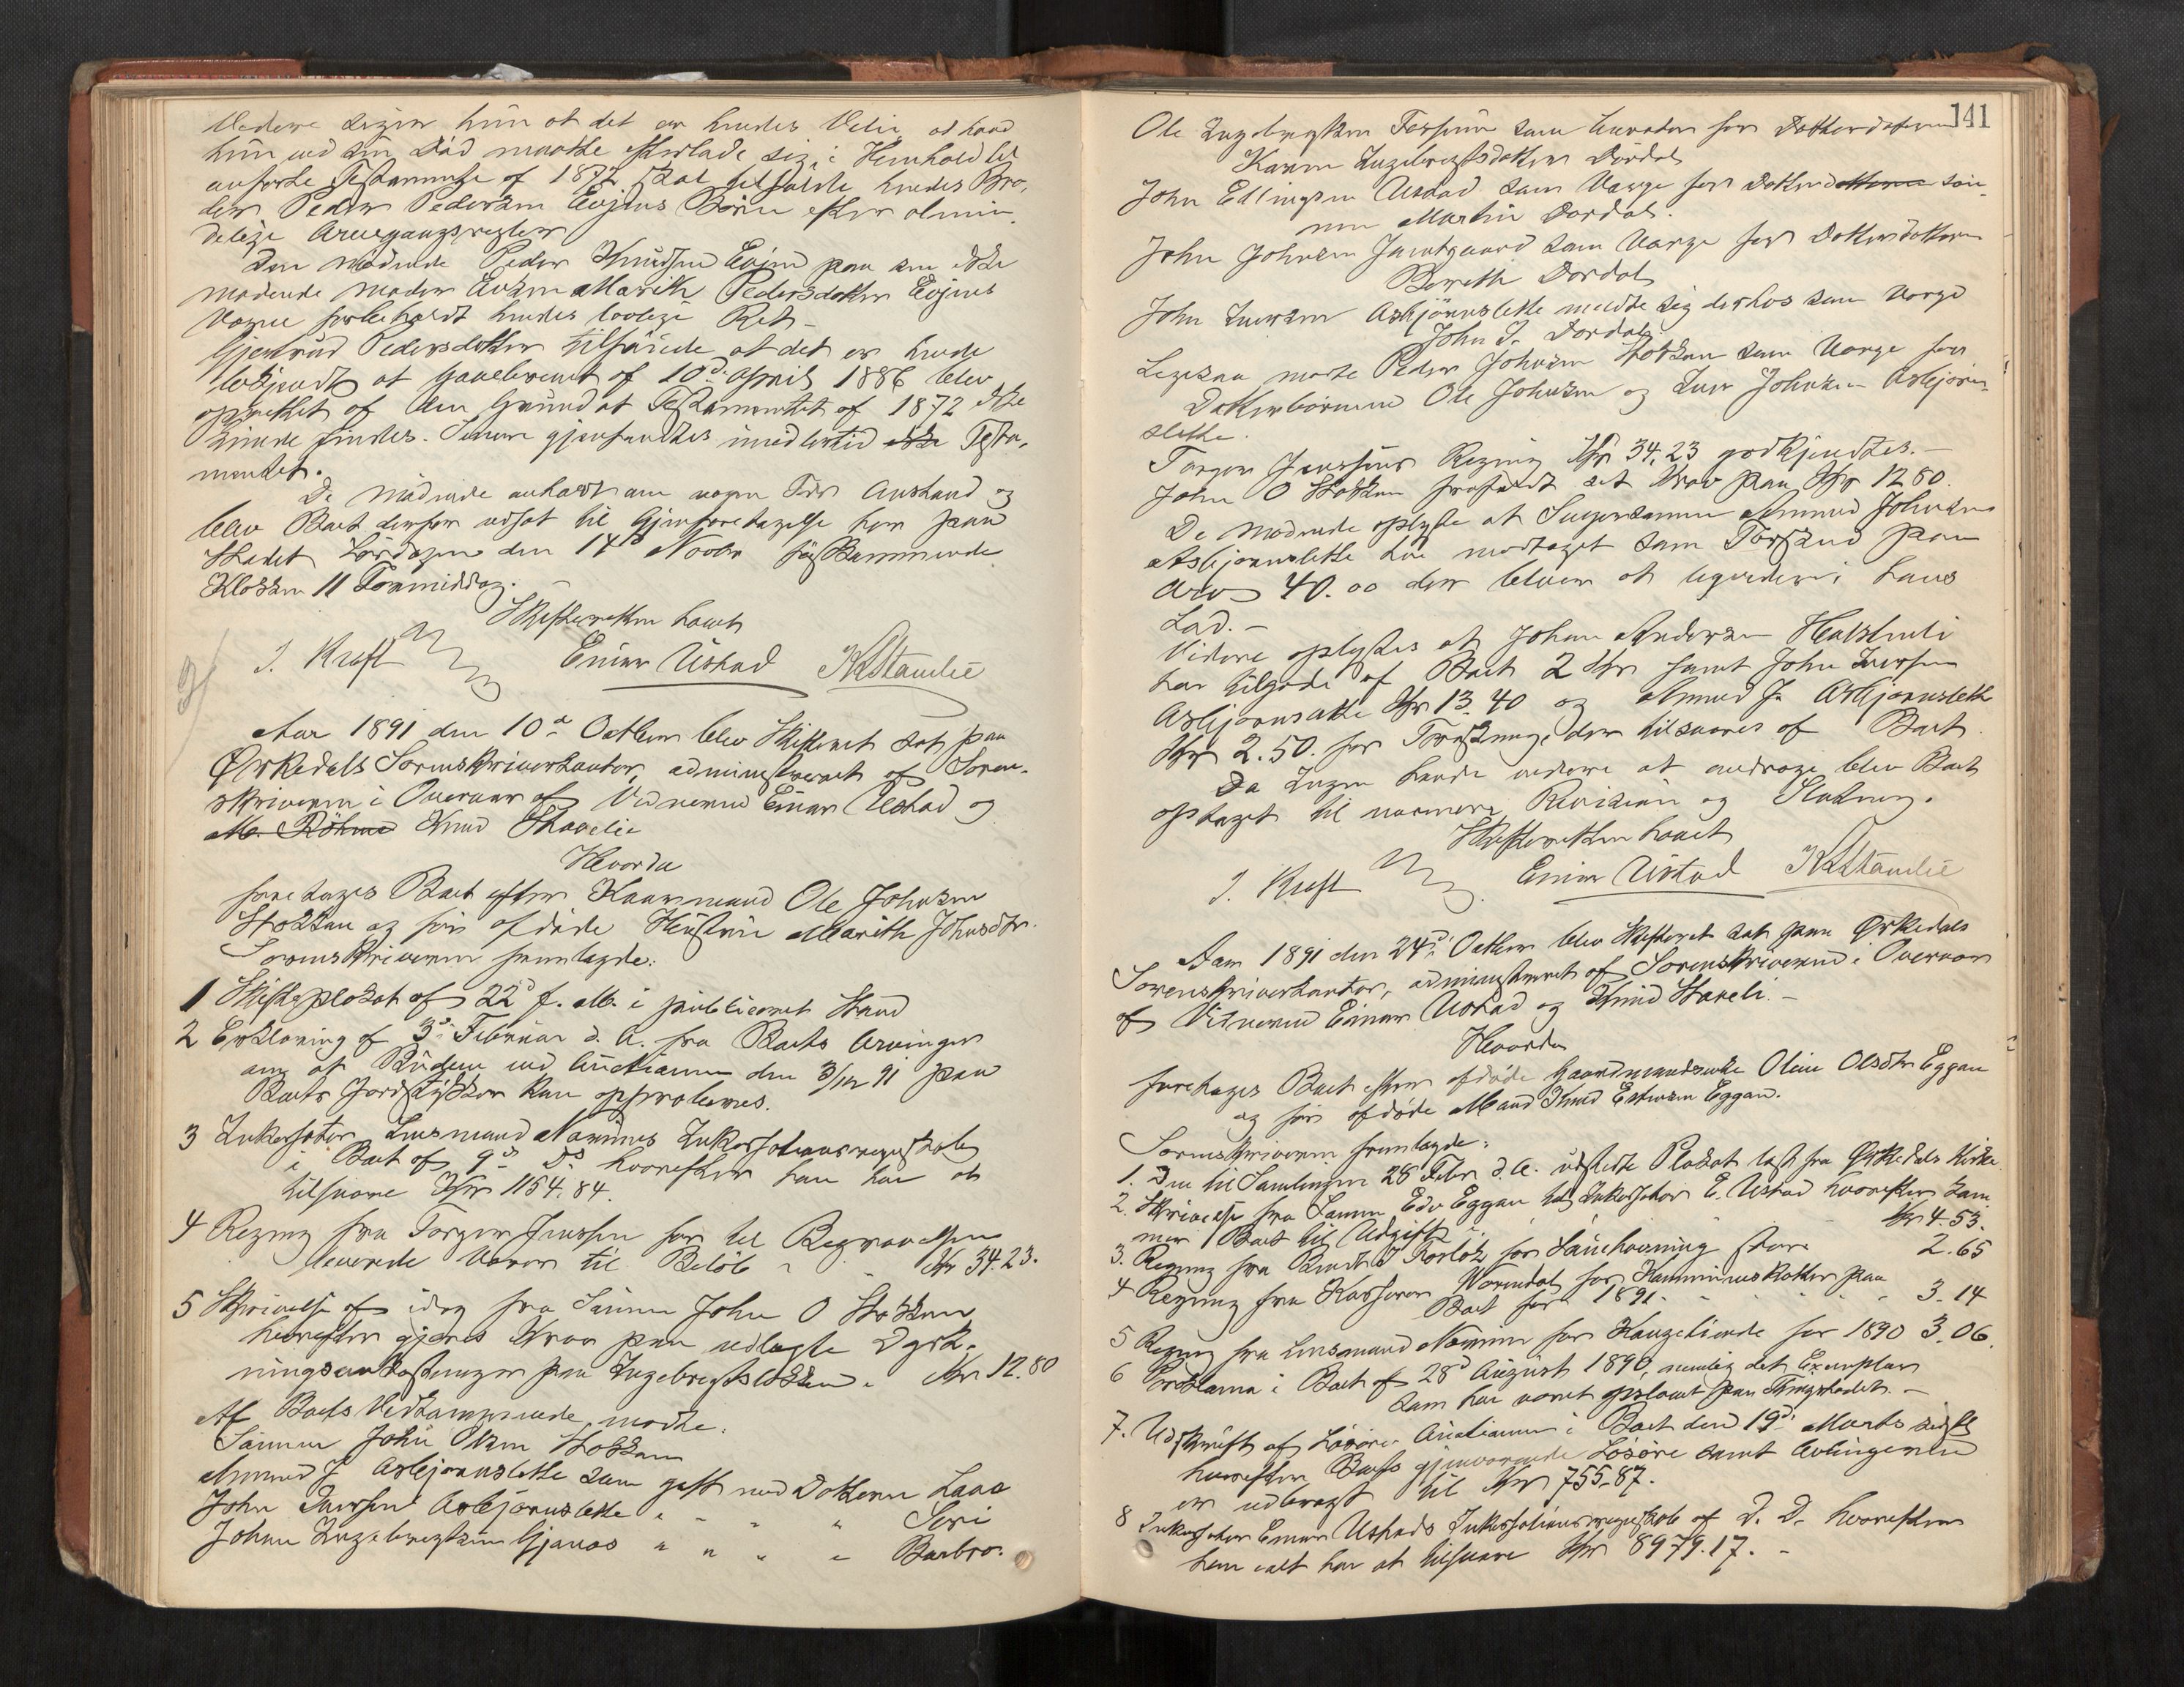 Videre siger hun at det er hendes Villie at hvad
hun ved sin Død maatte efterlade sig i Henhold til
anførte Testamente af 1872 skal tilfalde hendes Bro-
der Peder Pedersen Evjens Børn efter almin-
delige Arvegangsregler
Den mødende Peder Knudsen Evjen paa sin ikke
mødende Moder Marith Pedersdatter Evjens
Vegne forbeholdt hendes lovlige Ret -
Gjertrud Pedersdatter tilføiede at det er hende
bekjendt at Gavebrevet af 10de April 1886 blev
oprettet af den Grund at Testamentet af 1872 ikke
kunde findes. Senere gjenfandtes imidlertid ikke Testa-
mentet.
De mødende anholdt om nogen Tids Anstand og
blev Boet derfor udsat til Gjenforetagelse her paa
Stedet Lørdagen den 14de Novbr førstkommende
Klokken 11 Formiddag. -
Skifteretten hævet
J. Kreft Einar Ustad K. Stavelie
Aar 1891 den 10de Octbr blev Skifteret sat paa
Ørkedals Sorenskriverkontor, administreret af Soren-
skriveren i Overvær af Vidnerne Einar Ustad og
M. Röhme Knud Stavelie
Hvorda
foretages Boet efter Kaarmand Ole Johnsen
Stokkan og før afdøde Hustru Marith Johnsdtr.
Sorenskriveren fremlagde:
1 Skifteplakat af 22de f. M. i publiceret Stand
2 Erklæring af 3de Februar d. A. fra Boets Arvinger
om at Budene ved Auctionen den 3/12 91 paa
Boets Jordstykker kan approberes.
3 Inkassator Lensmand Nommes Inkassationsregnskab
i Boet af 9de Ds hvorefter han har at
tilsvare Kr 1154.84.
4 Regning fra Torger Jenssen for til Begravelsen
leverede Varer til Beløb " " Kr 34.23.
5 Skrivelse af idag fra Sønnen John O Stokkan
hvorefter gjøres Krav paa udlagte Dyrk-
ningsomkostninger paa Ingebrigtsløkken " Kr 12.80
Af Boets Vedkommende mødte:
Sønnen John Olsen Stokkan
Amund J Asbjørnslette som gift med Datteren Lava
John Iversen Asbjørnslette " " " " Siri
Johan Ingebrigtsen Gjønnes " " " " Barbro.
141
Ole Ingebrigtsen som Curator for Datterdatteren
Karen Ingebrigtsdatter Dordal
John Ellingsen Ustad som Værge for Datterdatteren søn-
nen Martin Dordal.
John Johnsen Jamtgaard som Værge for Datterdatteren
Bereth Dordal
John Iversen Asbjørnslette meldte sig derhos som Værge
John I. Dordal.
Ligesaa mødte Peder Johnsen Stokkan som Værge for
Datterbørnene Ole Johnsen og Iver Johnsen Asbjørn-
slette.
Torger Jenssens Regning Kr 34.23 godkjendtes. -
John O Stokkan frafaldt sit Krav paa Kr 12.80.
De mødende oplyste at Svigersønnen Amund Johnsen
Asbjørnslette har modtaget som Forskud paa
Arv 40.00 der bliver at liqvidere i hans
Lod. -
Videre oplystes at Johan Andersen Halsetli
har tilgode af Boet 2 Kr samt John Iversen
Asbjørnslette Kr 13.40 og Amund J. Asbjørnslette
Kr 2.50. for, der tilsvares af Boet.
Da Ingen havde videre at andrage blev Boet
optaget til nærmere Revision og Slutning.
Skifteretten hævet
J. Kreft Einar Ustad K. Stavelie
Aar 1891 den 24de Octbr blev Skifteret sat paa Ørkedals
Sorenskriverkontor, administreret af Sorenskriveren i Overvær
af Vidnerne Einar Ustad og Knud Staveli. -
Hvorda
foretages Boet efter afdøde Gaardmandsenke Oline Olsdtr Eggan
og før afdøde Mand Knud Estensen Eggan.
Sorenskriveren fremlagde:
1. Den til Samlingen 28 Febr d. A. udstedte Plakat læst fra Ørkedals Kirke.
2. Skrivelse fra Sønnen Edv Eggan til Inkassator E. Ustad hvorefter kom-
mer Boet til Udgift Kr 4.53.
3. Regning fra for 2.65
4 Regning fra Kasserer for Kommuneskatten paa
Boet for 1891. " " " " 3.14
5 Regning fra Lensmand Nommen for Kongetiende for 1890 3.06.
6 Proklama i Boet af 28de August 1890, nemlig det Exemplar
som har været opslaaet paa Thingstedet. -
7. Udskrift af Løsøre Auctionen i Boet den 19de Marts sidstl
hvorefter Boets gjenværende Løsøre samt Avlingen
er udbragt til Kr 755.87.
8 Inkassator Einar Ustads Inkassationsregnskab af D. D. hvorefter
han ialt har at tilsvare Kr 8979.17. -